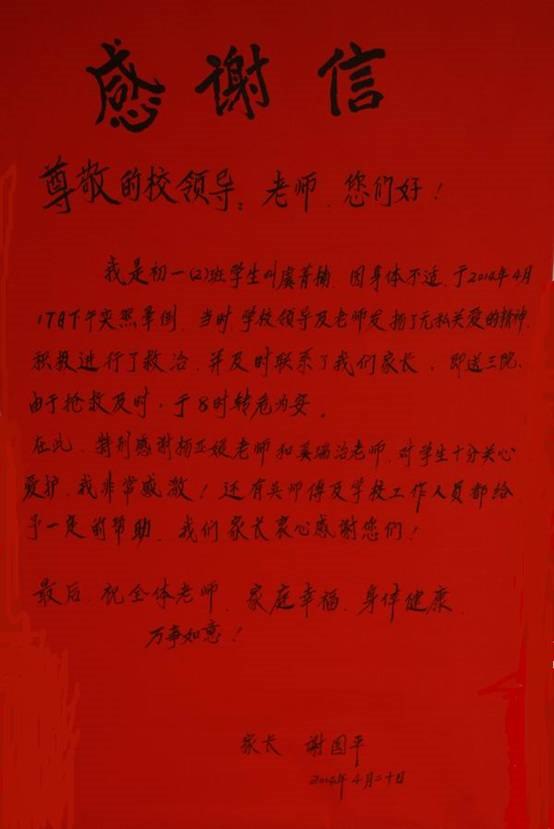 感谢信
尊敬的校领导：老师、您们好！
我是初一(2)班学生叫虞菁楠，因身体不适，于2014年4月
17日下午突然晕倒，当时学校领导及老师发扬了无私关爱的精神，
积极进行了救治，并及时联系了我们家长，即送三院，
由于抢救及时，于8时转危为安。
在此，特别感谢杨亚媛老师和莫瑞治老师，对学生十分关心
爱护，我非常感激！还有吴师傅及学校工作人员都给
予一定的帮助，我们家长衷心感谢您们！
最后，祝全体老师、家庭幸福、身体健康、
万事如意！
家长 谢国平
2014年4月二十日